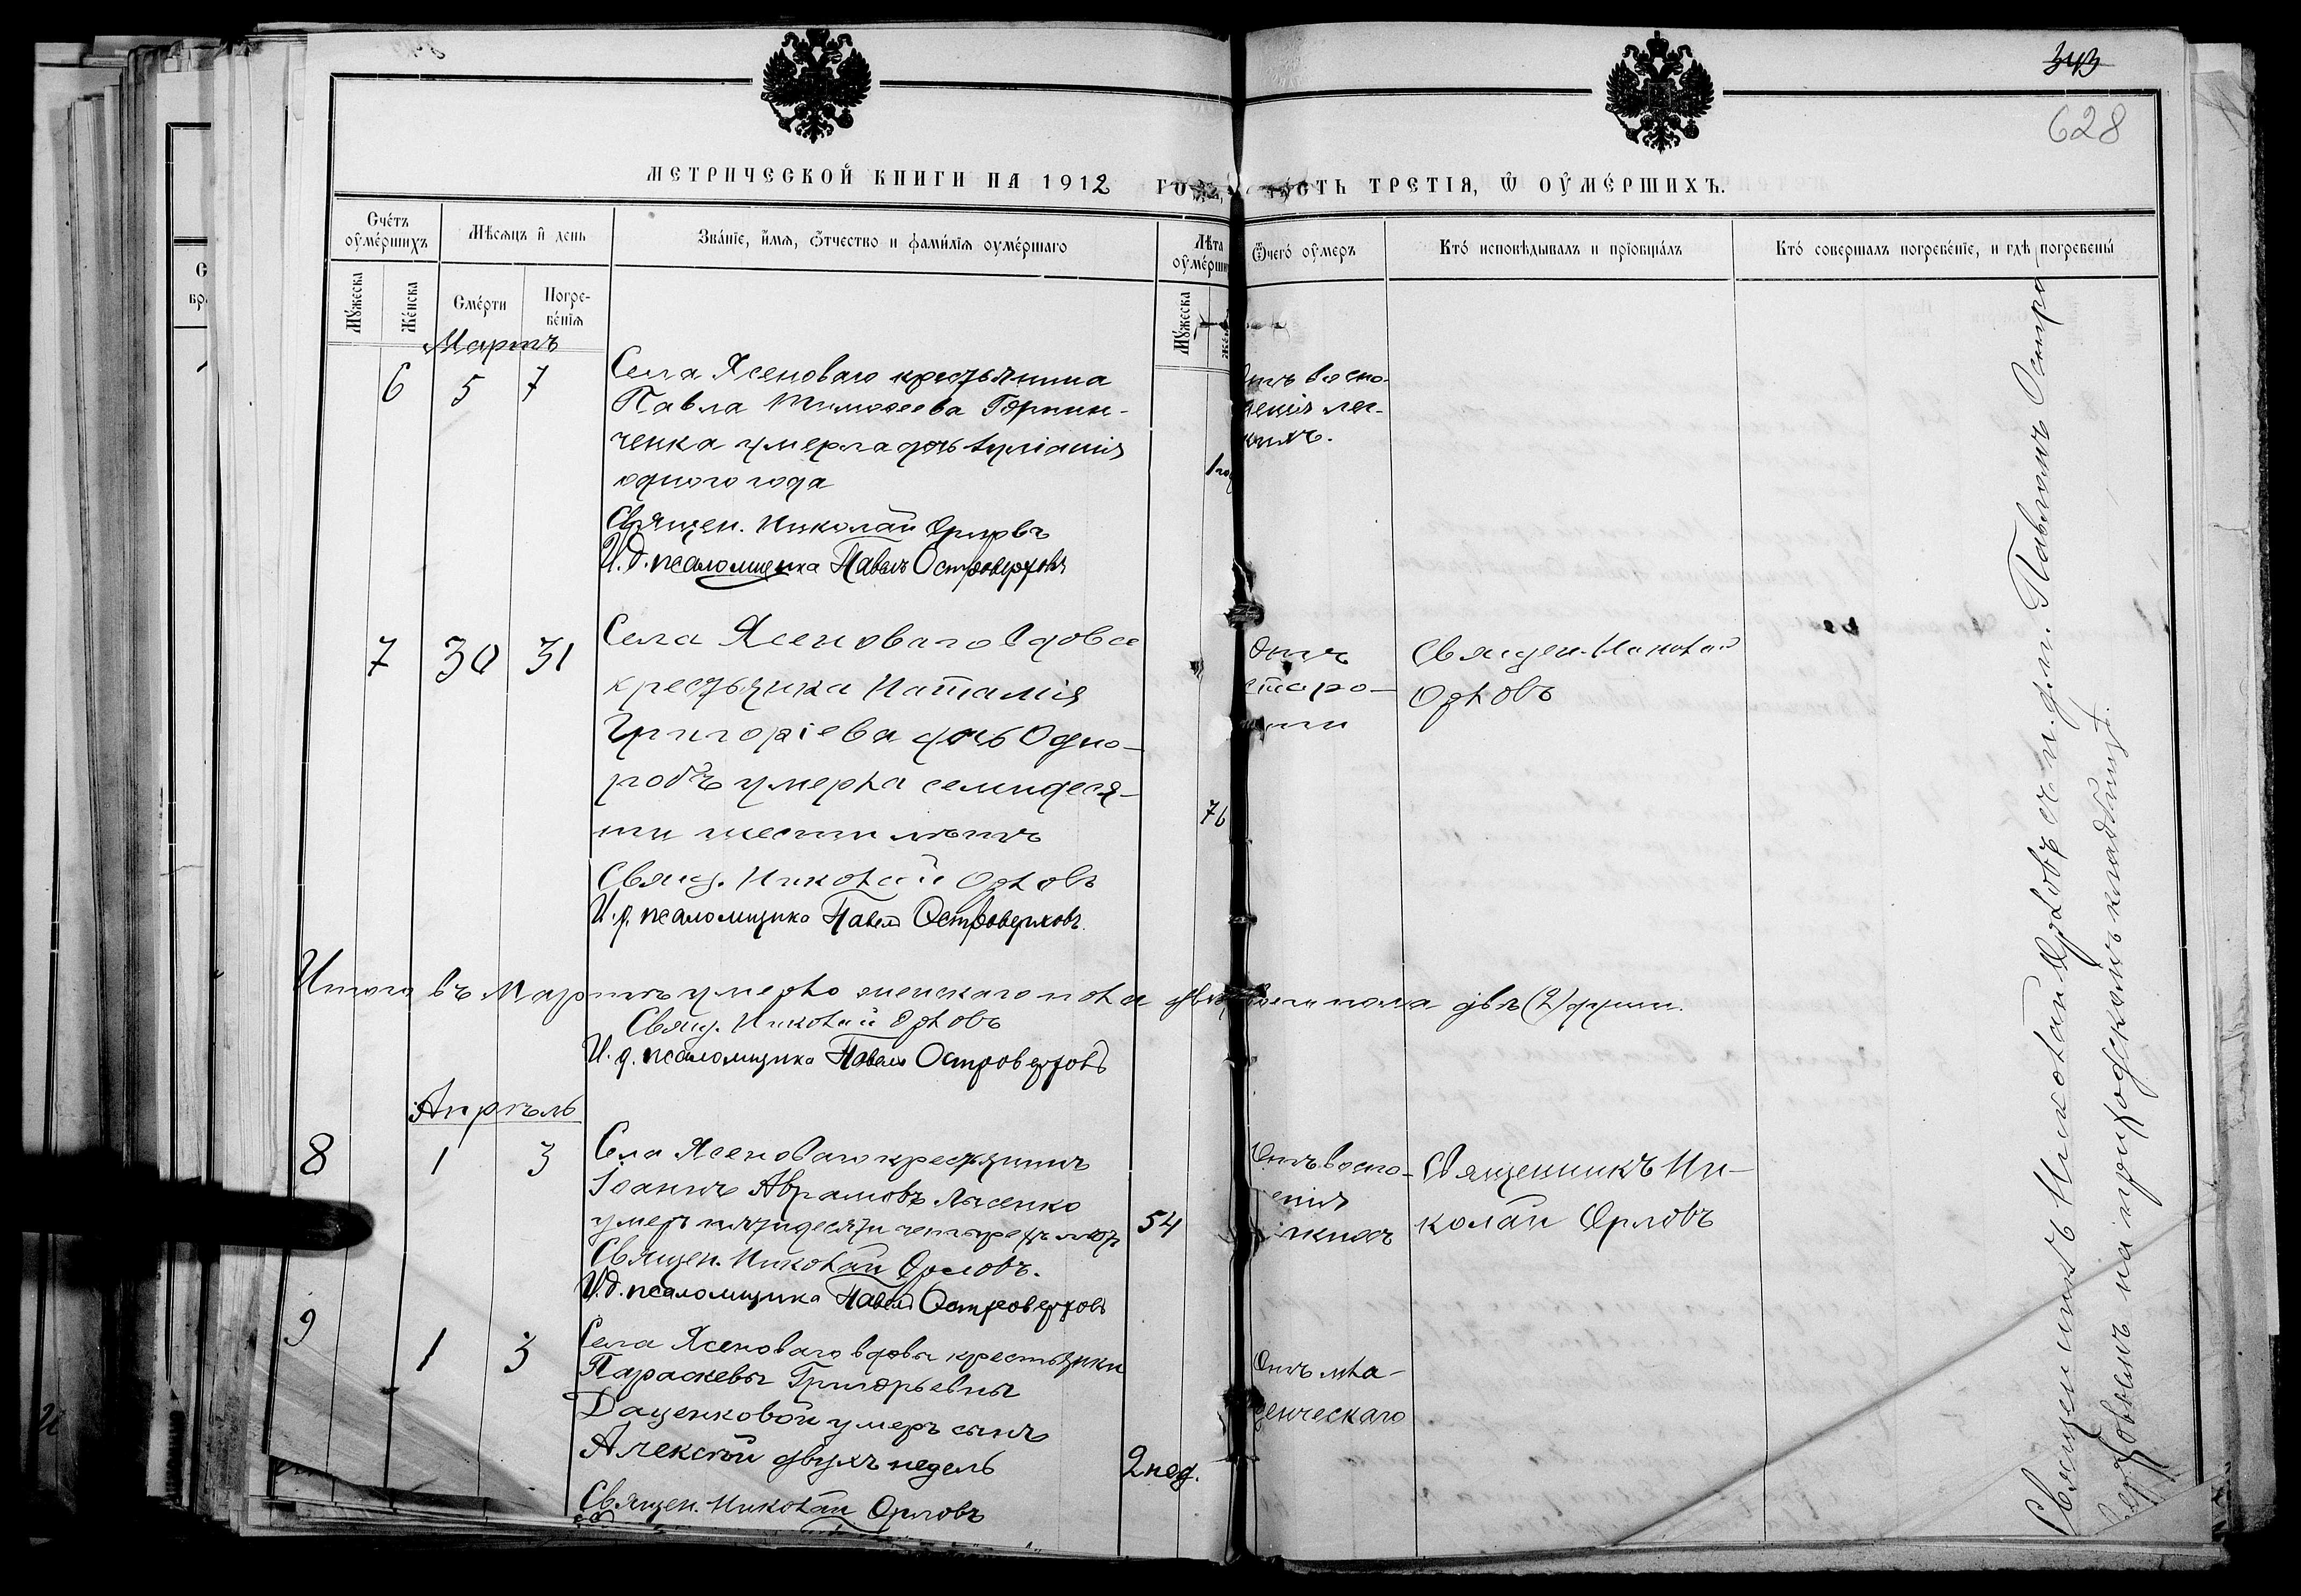 343
628
МЕТРИЧЕСКОЙ КНИГИ НА 1912 ГОДЪ, ЧАСТЬ ТРЕТІЯ, Ѿ ОУМЕРШИХЪ.
Счетъ оумершихъ
Мѣсяцъ и день
Званіе, имя, ѿчество и фамилія оумершаго
Лѣта оумерши
Ѿчего оумеръ
Кто исповѣдывалъ и пріобщалъ
Кто совершалъ погребеніе, и гдѣ погребены
Мужеска
Женска
Смерти
Погребенія
Мужеска
Мартъ
6 5 7
Села Ясеноваго крестьянина
Павла Тимоѳеева Горпин-
ченка умерла дочь Іуліанія
одного года
1 го
Отъ воспа-
ленія лег-
кихъ.
Священ. Николай Орловъ
И. д. псаломщика Павелъ Островерховъ
7 30 31
Села Ясеноваго вдова
крестьянка Наталія
Григоріева дочь Одно-
робъ умерла семидеся-
ти шести лѣтъ
76
Отъ
старо-
сти
Священ. Николай
Орловъ
Свящ. Николай Орловъ
И. д. псаломщика Павелъ Островерховъ.
Итого въ Мартѣ умерло женскаго пола двѣ, обоего пола двѣ (2) души.
Свящ. Николай Орловъ
И. д. псаломщика Павелъ Островерховъ
Апрѣль
8 1 3
Села Ясеноваго крестьянинъ
Іоаннъ Аврамовъ Лысенко
умеръ пятидесяти четырехъ лѣтъ
54
Отъ воспа-
ленія
легкихъ
Священникъ Ни-
колай Орловъ
Священ. Николай Орловъ.
И. д. псаломщика Павелъ Островерховъ
9 1 3
Села Ясеноваго вдовы крестьянки
Параскевы Григорьевны
Даценковой умеръ сынъ
Алексѣй двухъ недель
2 нед.
Отъ мла-
денческаго
Священ. Николай Орловъ
Священникъ Николай Орловъ съ и. д. п. Павломъ Остро-
верховымъ на приходскомъ кладбищѣ.